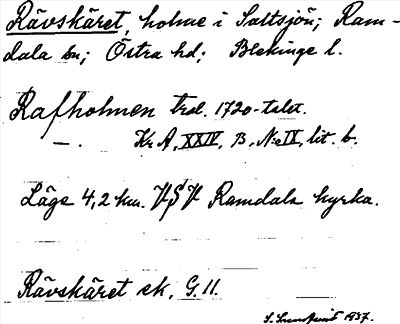 Rävskäret, holme i Saltsjön; Ram-
dala sn; Östra hd; Blekinge l.
Rafholmen trol. 1720-talet.
—. Kr A, XXIV, B, N:o IX, lit. b.
Läge 4,2 km. VSV Ramdala kyrka.
Rävskäret ek. G. 11.
1937.